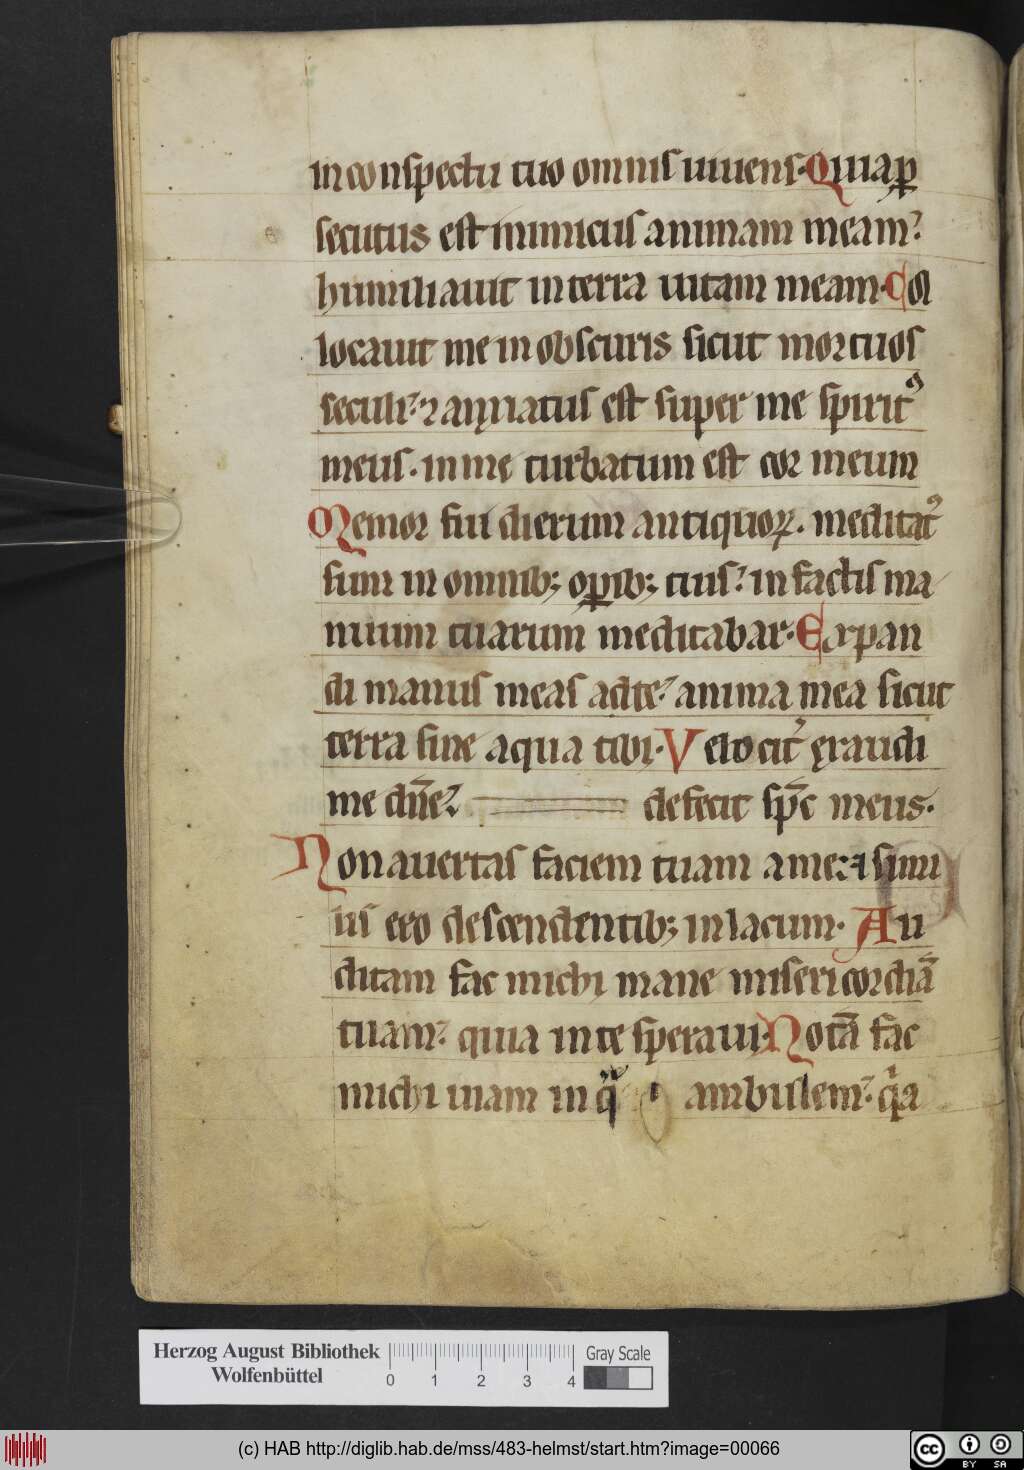 in conspectu tuo omnis uiuens. Quia ꝑ
secutus est inimicus animam meam:
humiliauit in terra uitam meam. Col
locauit me in obscuris sicut mortuos
seculi: ⁊ anxiatus est super me spiritꝰ
meus. in me turbatum est cor meum
Memor fui dierum antiquoꝝ. meditatꝰ
sum in omnibꝫ oꝑibꝫ tuis: in factis ma
nuum tuarum meditabar. Expan
di manus meas ad te: anima mea sicut
terra sine aqua tibi. Velocit᷑ exaudi
me dn̄e: defecit sp̄c meus.
Non auertas faciem tuam a me: ⁊ simi
lis ero descendentibꝫ in lacum. Au
ditam fac michi mane misericordiā
tuam: quia in te speraui. Notā fac
michi uiam in q̈ ambulem: qͥa
Herzog August Bibliothek
Wolfenbüttel
0 1 2 3 4
Gray Scale
(c) HAB http://diglib.hab.de/mss/483-helmst/start.htm?image=00066
cc BY SA